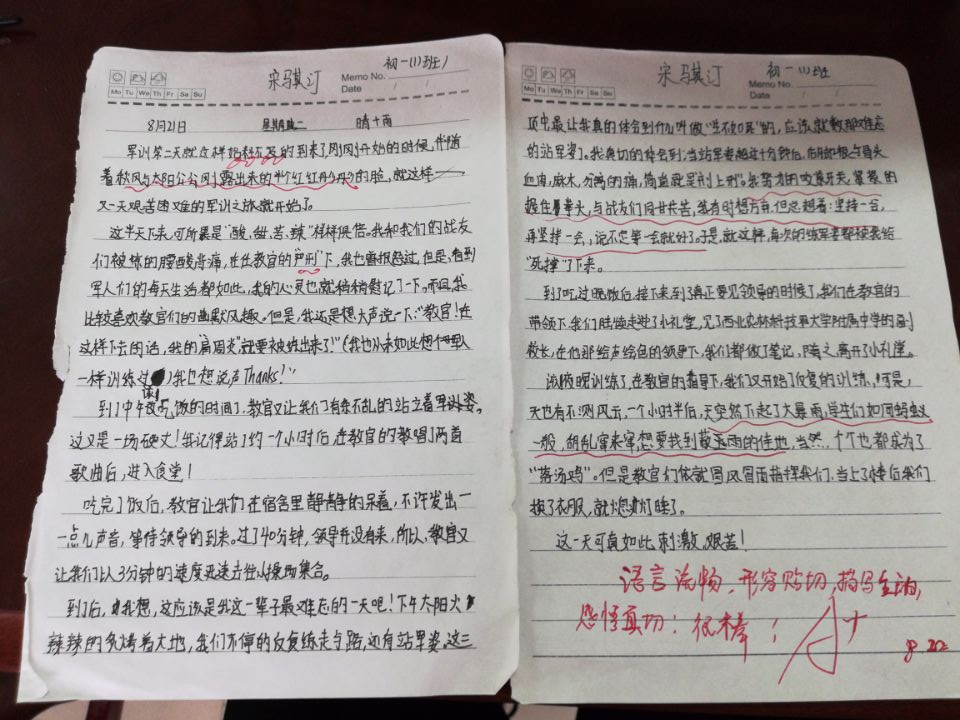 宋骐汀
初一(1)班
Memo No.
Date
Mo Tu We Th Fr Sa Su
8月21日 星期二 晴+雨
军训第二天就这样的到来了。刚刚开始的时候,伴随
着秋风与太阳公公刚露出来的半个红红彤彤的脸,就这样
又一天艰苦困难的军训之旅就开始了。
这半天下来,可所畏是“酸、甜、苦、辣”样样俱倍。我和我们的战友
们被练的腰酸背痛,在教官的“严刑”下,我也曾报怨过,但是,看到
军人们的每天生活都如此,我的心灵也就稍稍慰记了一下。而且我
比较喜欢教官们的幽默风趣。但是,我还是想大声说一下:“教官!在
这样下去的话,我的“肩周炎”就要被练出来了!”(我也从未如此想个军人
一样训练过)我也想说声Thanks!”
到了中午该吃饭的时间了,教官又让我们有条不乱的站立着军训姿。
这又是一场硬丈!我记得站了约一个小时后,在教官的教唱了两首
歌曲后,进入食堂!
吃完了饭后,教官让我们在宿舍里静静的呆着,不许发出一
点儿声音,等待领导的到来。过了40分钟,领导并没有来,所以,教官又
让我们以3分钟的速度迅速去往操场集合。
到了后,我想,这应该是我这一辈子最难忘的一天吧!下午太阳火
辣辣的灸烤着大地,我们不停的反复练走与踏,还有站军姿。这三
宋骐汀
初一(1)班
Memo No.
Date
Mo Tu We Th Fr Sa Su
项中,最让我真的体会到什么叫做“生不如死”的,应该就数那难忘
的站军姿了。我真切的体会到:当站军姿超过十分钟后,后脚根与骨头
血肉,麻木,分离的痛,简直就是削上刑。我努力的咬紧牙关,紧握的
握住拳头,与战友们同甘共苦,虽有时想方弃,但总想着:坚持一会,
再坚持一会,说不定等一会就好了。于是,就这样,每次的练军姿都被我给
“死撑”了下来。
到了吃过晚饭后,接下来到了真正要见领导的时候了,我们在教官的
带领下,我们陆续走进了小礼堂,见了西北农林科技大学附属中学的副
校长,在他那绘声绘色的领导下,我们都做了笔记,随之,离开了小礼堂。
该晚训练了,在教官的指导下,我们又开始了反复的训练,可是,
天也有不测风云,一个小时半后,天突然下起了大暴雨,学生们如同蚂蚁
一般,胡乱窜来窜,想要找到蔽雨的佳地,当然,个个也都成为了
“落汤鸡”。但是教官们依就冒风冒雨指挥我们,当上了楼后我们
换了衣服,就熄灯睡了。
这一天可真如此刺激、艰苦!
语言流畅、形容贴切、描写生动,
感悟真切!很棒!
A+
8.22